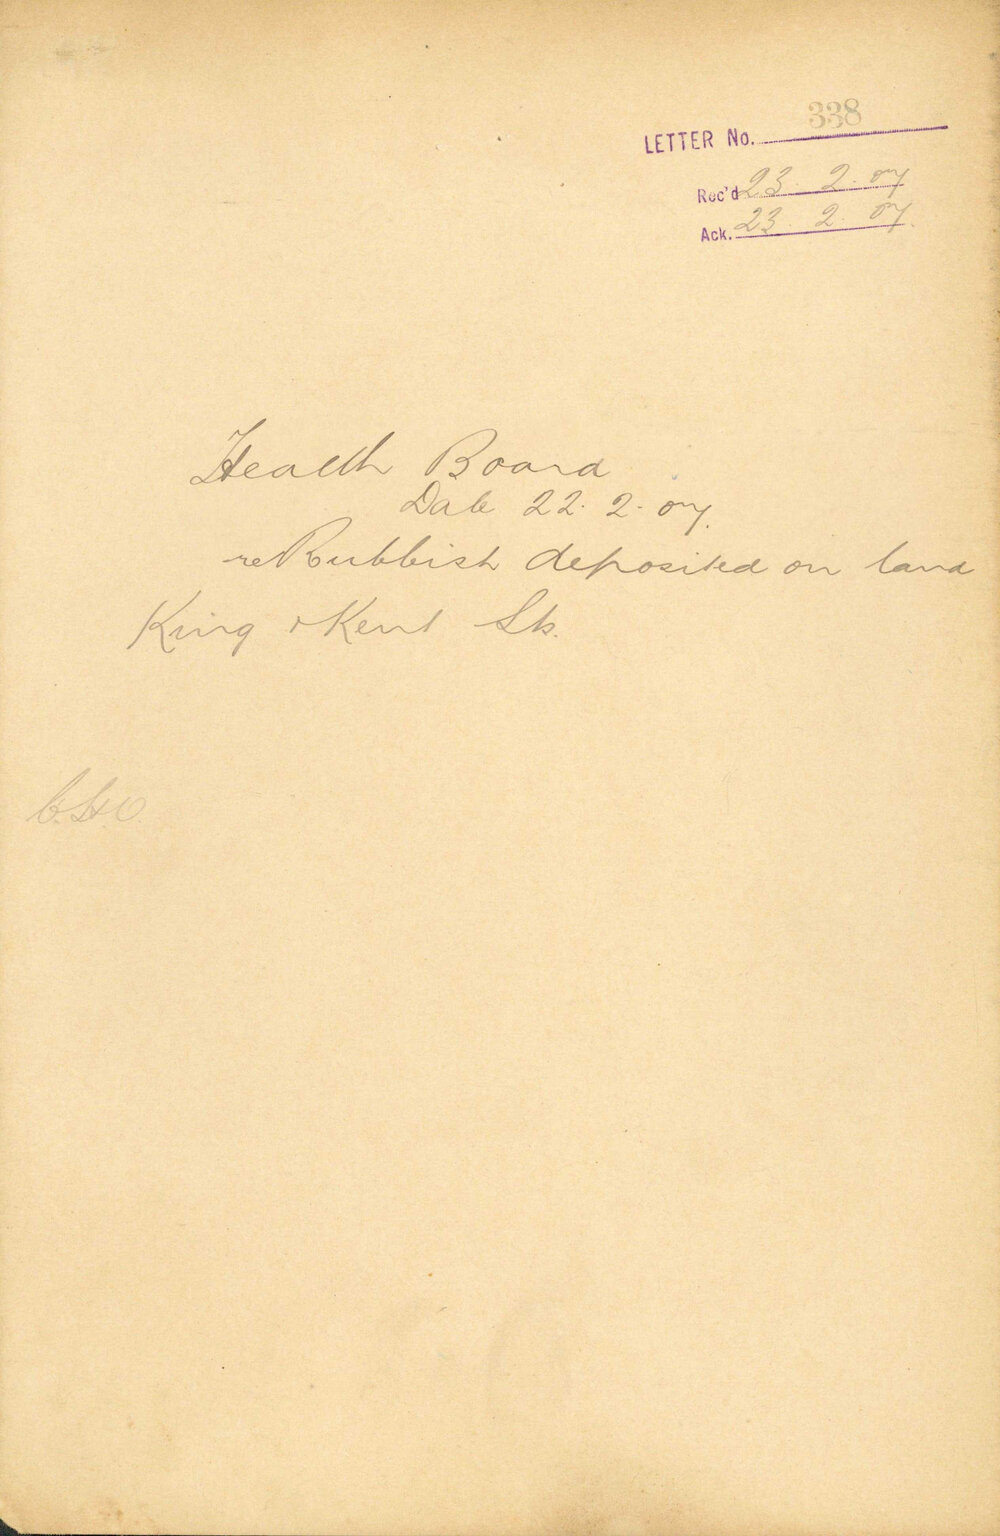 338
LETTER No.
Rec'd 23. 2. 07
Ack. 23. 2. 07.
Health Board
Date 22. 2. 07.
re Rubbish deposited on land
King & Kent Sts.
C.H.O.